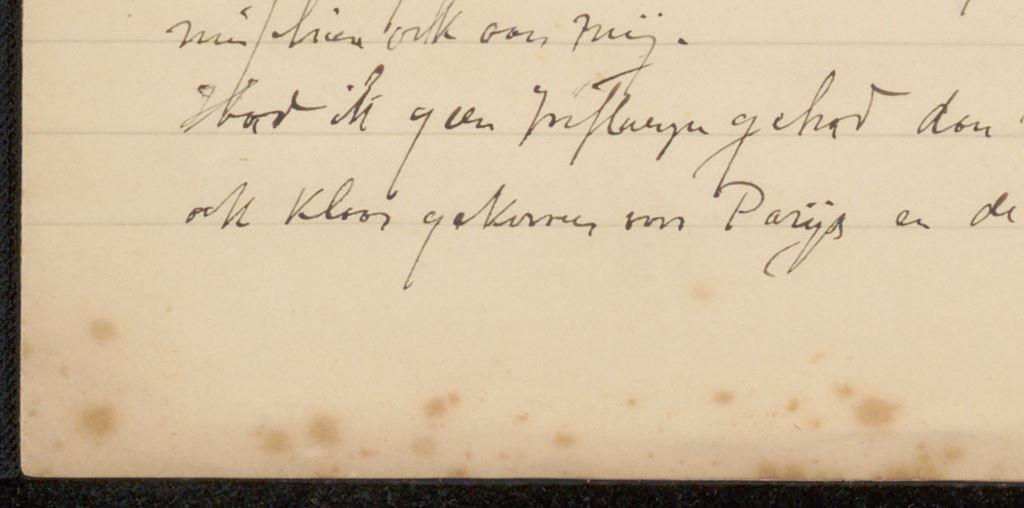 misschien ook aan mij.
Had ik geen Influenza gehad dan
ook klaar gekomen voor Parijs en de